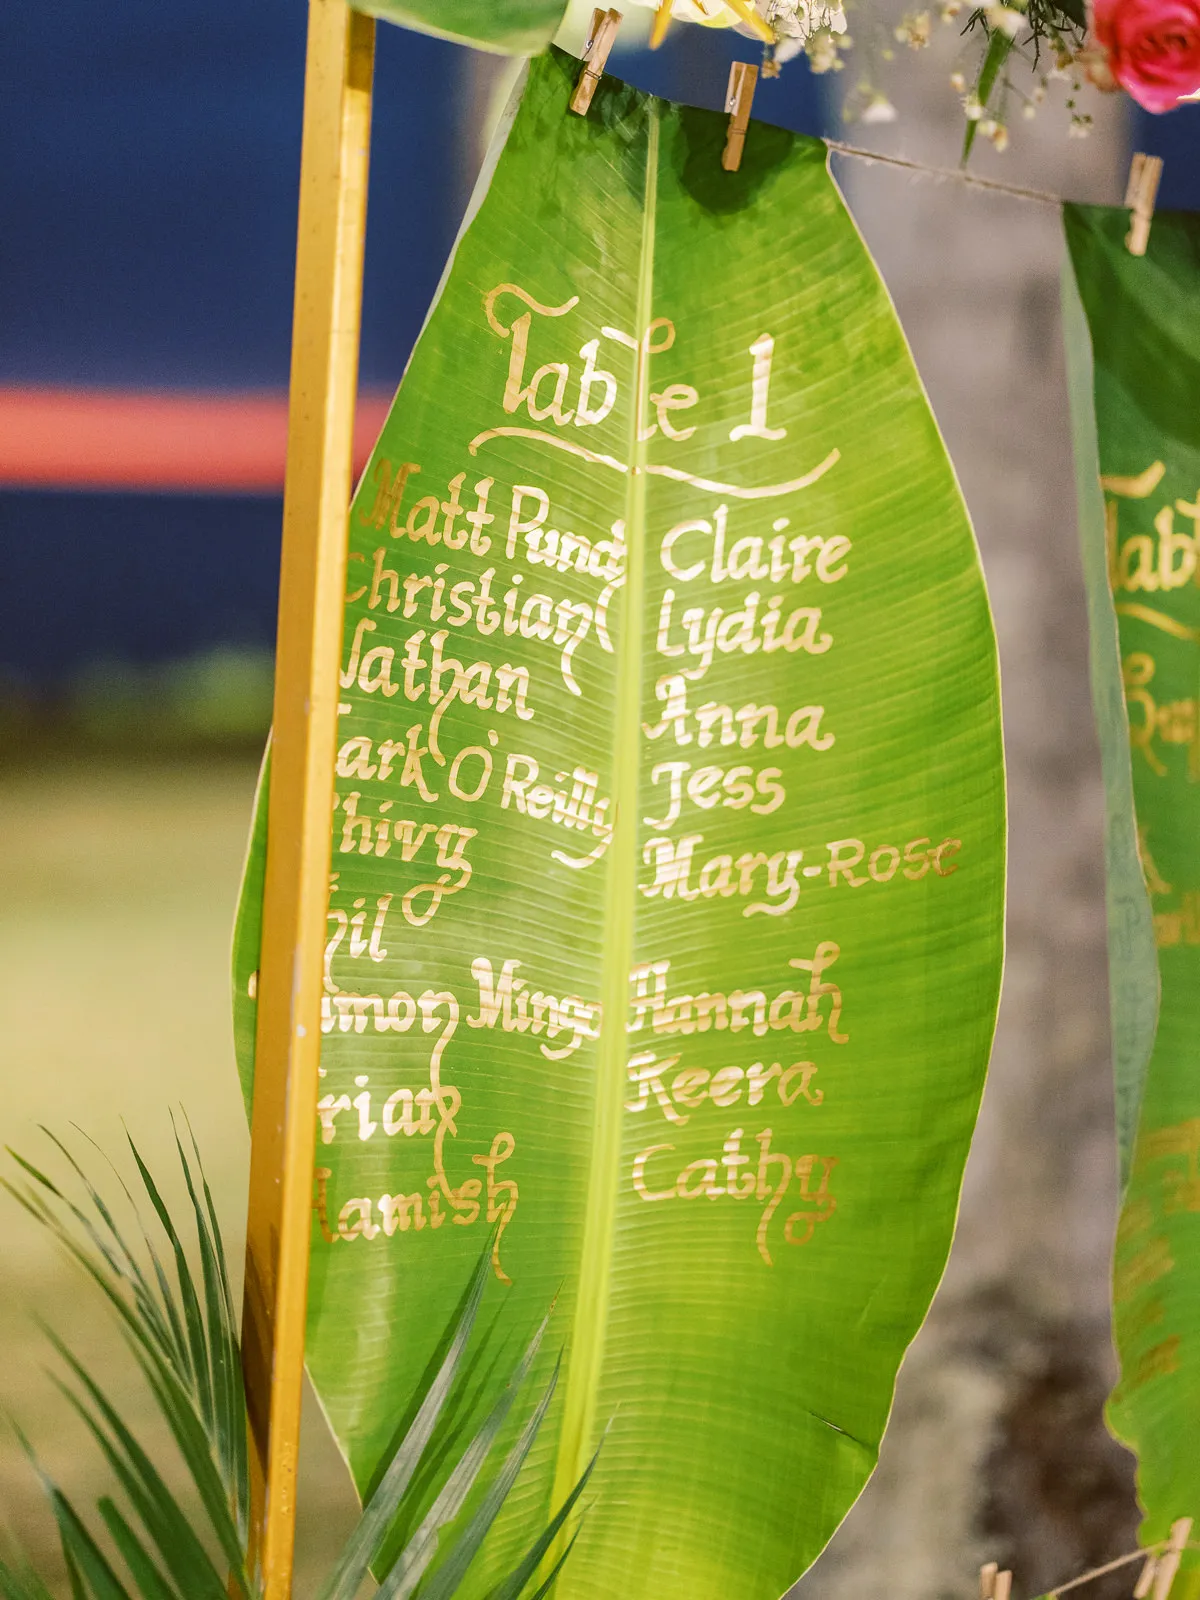 Table 1
Matt Pund
Christian
Nathan
ark O'Reilly
hivy
hil
imon Mingo
rian
amish
Claire
Lydia
Anna
Jess
Mary-Rose
Hannah
Keera
Cathy
Tabl